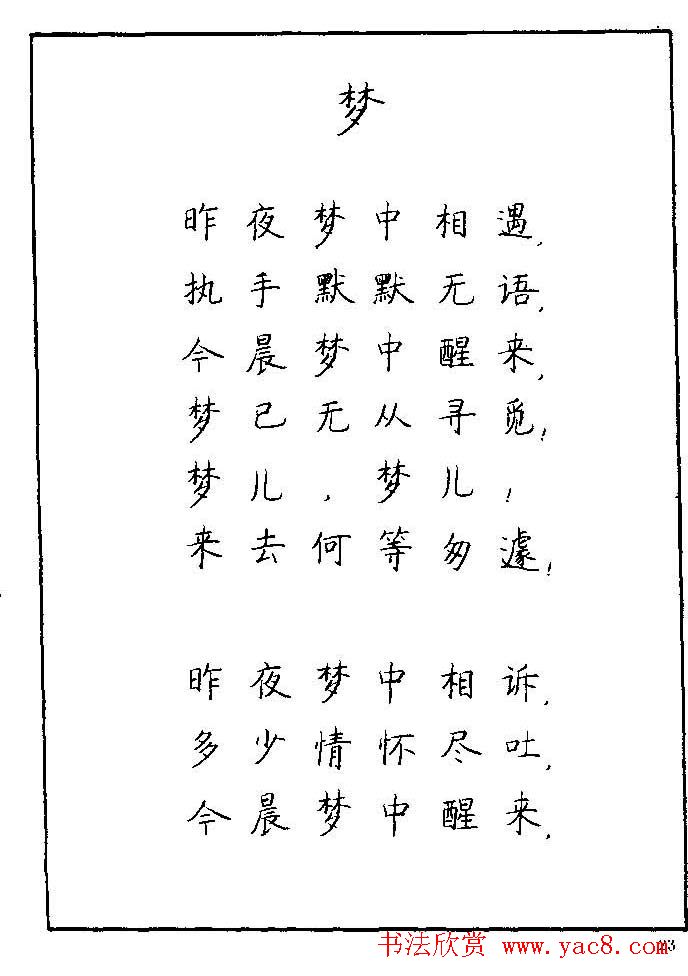 梦
昨夜梦中相遇,
执手默默无语,
今晨梦中醒来,
梦已无从寻觅!
梦儿,梦儿!
来去何等匆遽!
昨夜梦中相诉,
多少情怀尽吐,
今晨梦中醒来,
书法欣赏 www.yac8.com